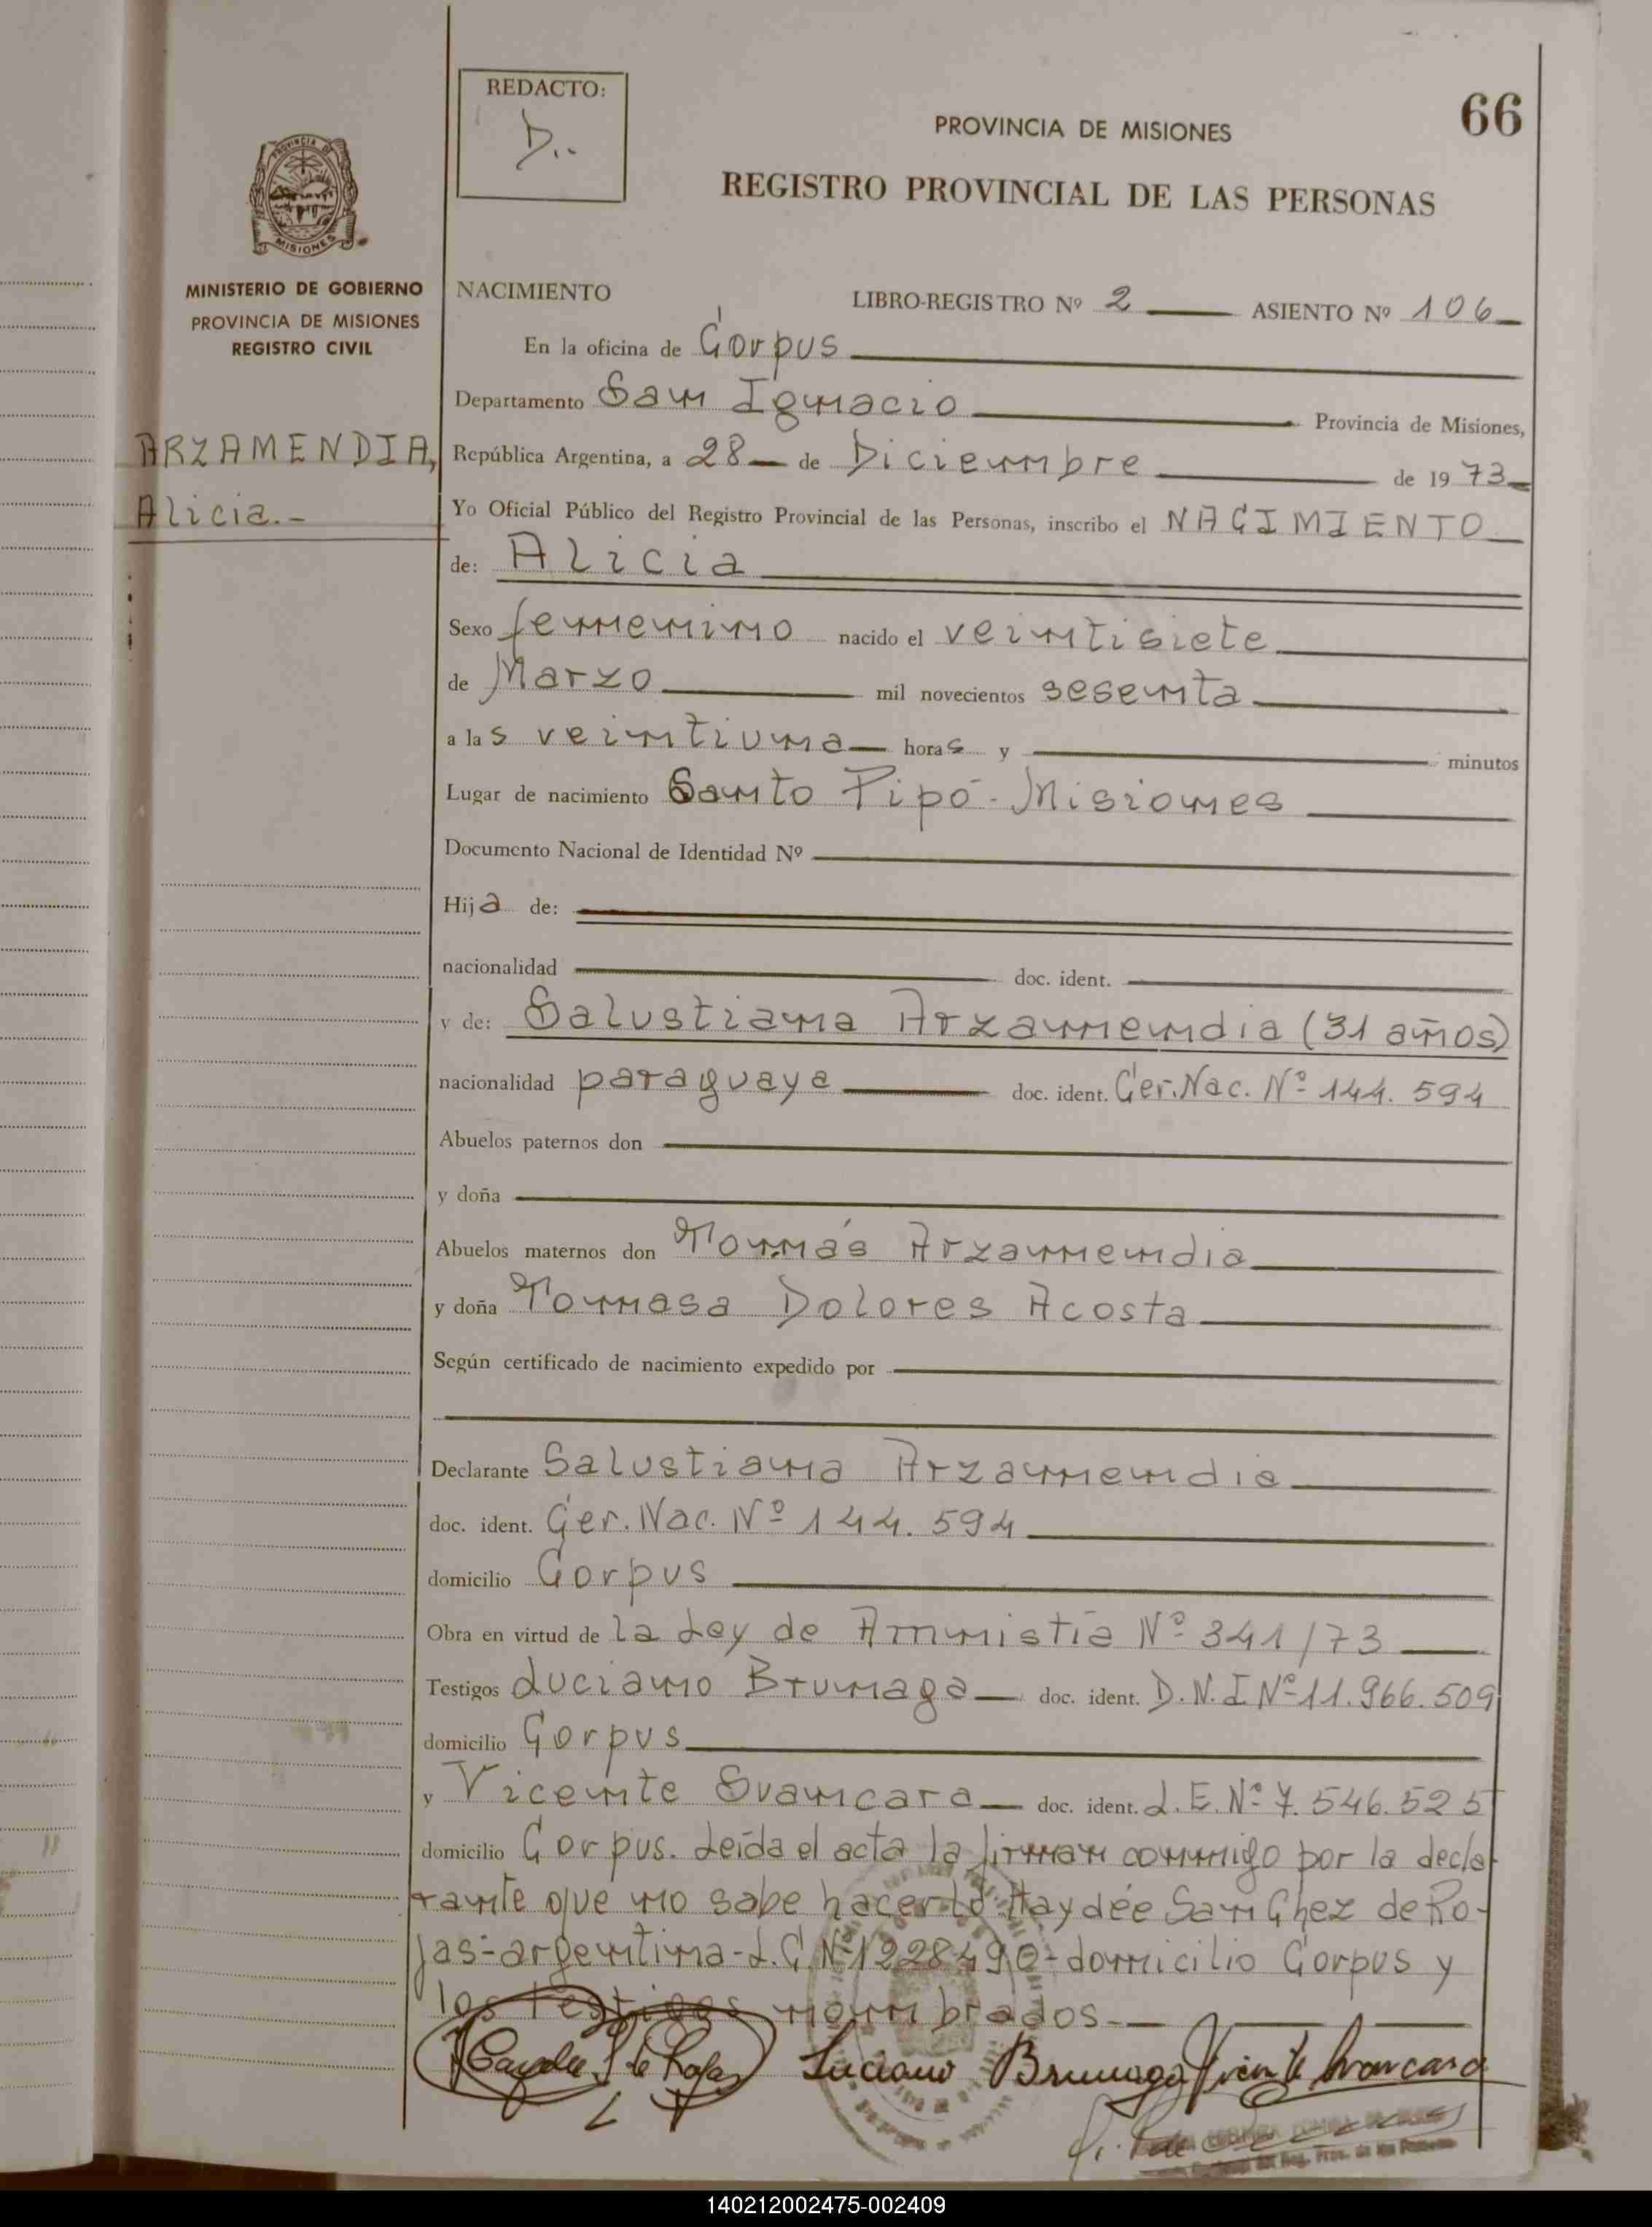 REDACTO:
D..
66
PROVINCIA DE MISIONES
REGISTRO PROVINCIAL DE LAS PERSONAS
PROVINCIA DE
MISIONES
MINISTERIO DE GOBIERNO
PROVINCIA DE MISIONES
REGISTRO CIVIL
ARZAMENDIA,
Alicia.-
NACIMIENTO LIBRO-REGISTRO Nº 2 ASIENTO Nº 106
En la oficina de Corpus
Departamento San Ignacio Provincia de Misiones,
República Argentina, a 28 de Diciembre de 1973
Yo Oficial Público del Registro Provincial de las Personas, inscribo el NACIMIENTO
de: Alicia
Sexo femenino nacido el veintisiete
de Marzo mil novecientos sesenta
a las veintiuna horas y minutos
Lugar de nacimiento Santo Pipó - Misiones
Documento Nacional de Identidad Nº
Hija de:
nacionalidad doc. ident.
y de: Salustiana Arzamendia (31 años)
nacionalidad paraguaya doc. ident. Cer. Nac. Nº 144.594
Abuelos paternos don
y doña
Abuelos maternos don Tomás Arzamendia
y doña Tomasa Dolores Acosta
Según certificado de nacimiento expedido por
Declarante Salustiana Arzamendia
doc. ident. Cer. Nac. Nº 144.594
domicilio Corpus
Obra en virtud de la Ley de Amnistía Nº 341/73
Testigos Luciano Brunaga doc. ident. D.N.I Nº 11.966.509
domicilio Corpus
y Vicente Svancara doc. ident. L.E. Nº 7.546.525
domicilio Corpus. Leída el acta la firman conmigo por la decla-
rante que no sabe hacerlo Haydée Sanchez de Ro-
jas-argentina-L.C. Nº 1228490-domicilio Corpus y
los testigos nombrados.-
Haydée S de Rojas Luciano Brunaga Vicente Svancara
140212002475-002409